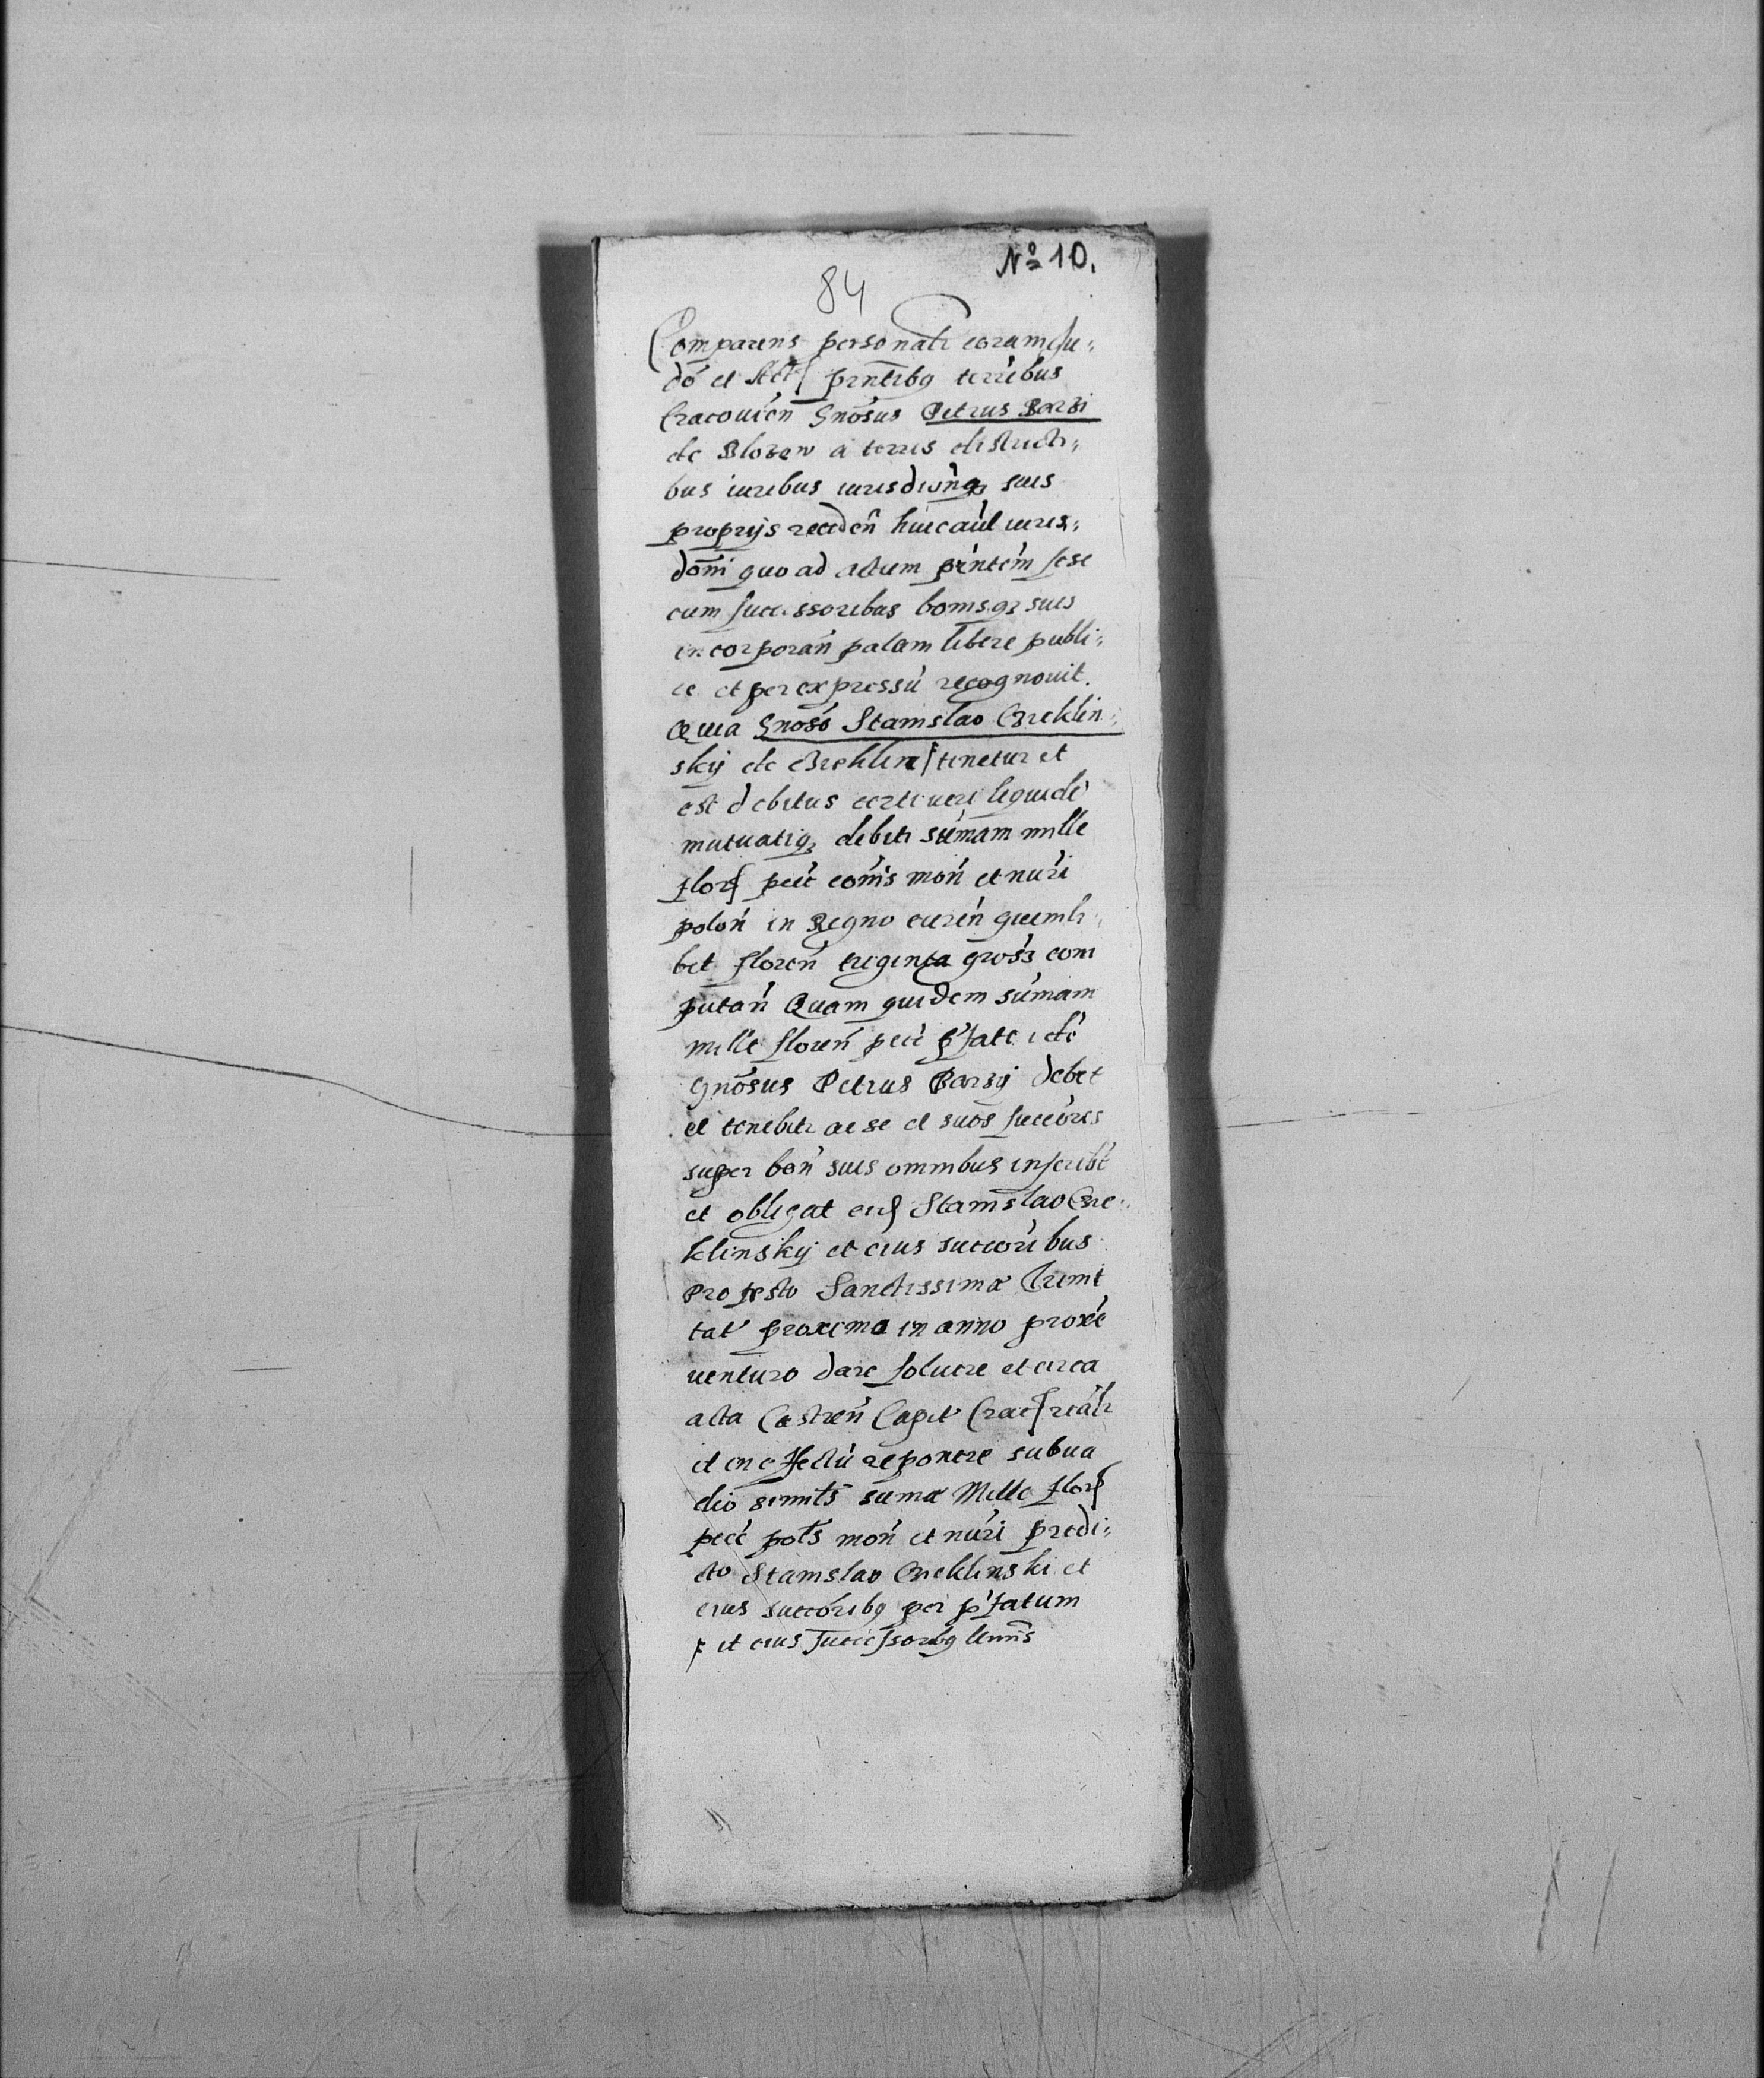 Nº 10.
84
Comparens personalr coram Ju„
dó et Act prntibq terribus
Cracouién Gnōsus Petrus Barzi
de Blozew a terris districti„
bus iuribus iurisdiōnq suis
proprijs recedēn huic aúl iuris„
dōni quo ad actum prńtem sese
cum successoribus bonisq suis
incorporañ palam libere publi„
ce et per expressú recognouit.
Quia Gnosó Stanislao Czeklin„
skij de Czeklin tenetur et
est debitus certi ueri liquidi
mutuatiq debiti súmam mille
flor pecć cōnis moń et nuŕi
poloń in Regno cureń quemli„
bet floreń triginta gross com
putań Quam quidem súmam
mille floreń pecć pfate idé
Gnōsus Petrus Barzij debet
et tenebitr ac se et suōs succōres
super boń suis omnibus inscribt
et obligat eid Stanislao Cze„
klinskij et eius succoŕibus
pro festo Sanctissimæ Trini
tať proxima in anno proxé
uenturo dare soluere et circa
acta Castreń Capit Crac reálr
et in effectú reponere sub ua
dio similis sumæ Mille flor
pecć polś moń et nuŕi predi„
cto Stanislao Czeklinski et
eius succórìbq per p'fatum
et eius successoribq